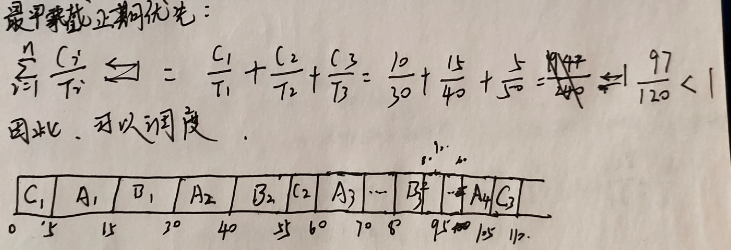 最早截止期优先:
\sum_{i=1}^{n} \frac{C_i}{T_i} ≤ 1 = \frac{C_1}{T_1} + \frac{C_2}{T_2} + \frac{C_3}{T_3} = \frac{10}{30} + \frac{15}{40} + \frac{5}{50} = \frac{97}{120} < 1
因此、可以调度.
C_1 A_1 B_1 A_2 B_2 C_2 A_3 ... B_3 ... A_4 C_3
0 5 15 30 40 55 60 70 8 95 105 110